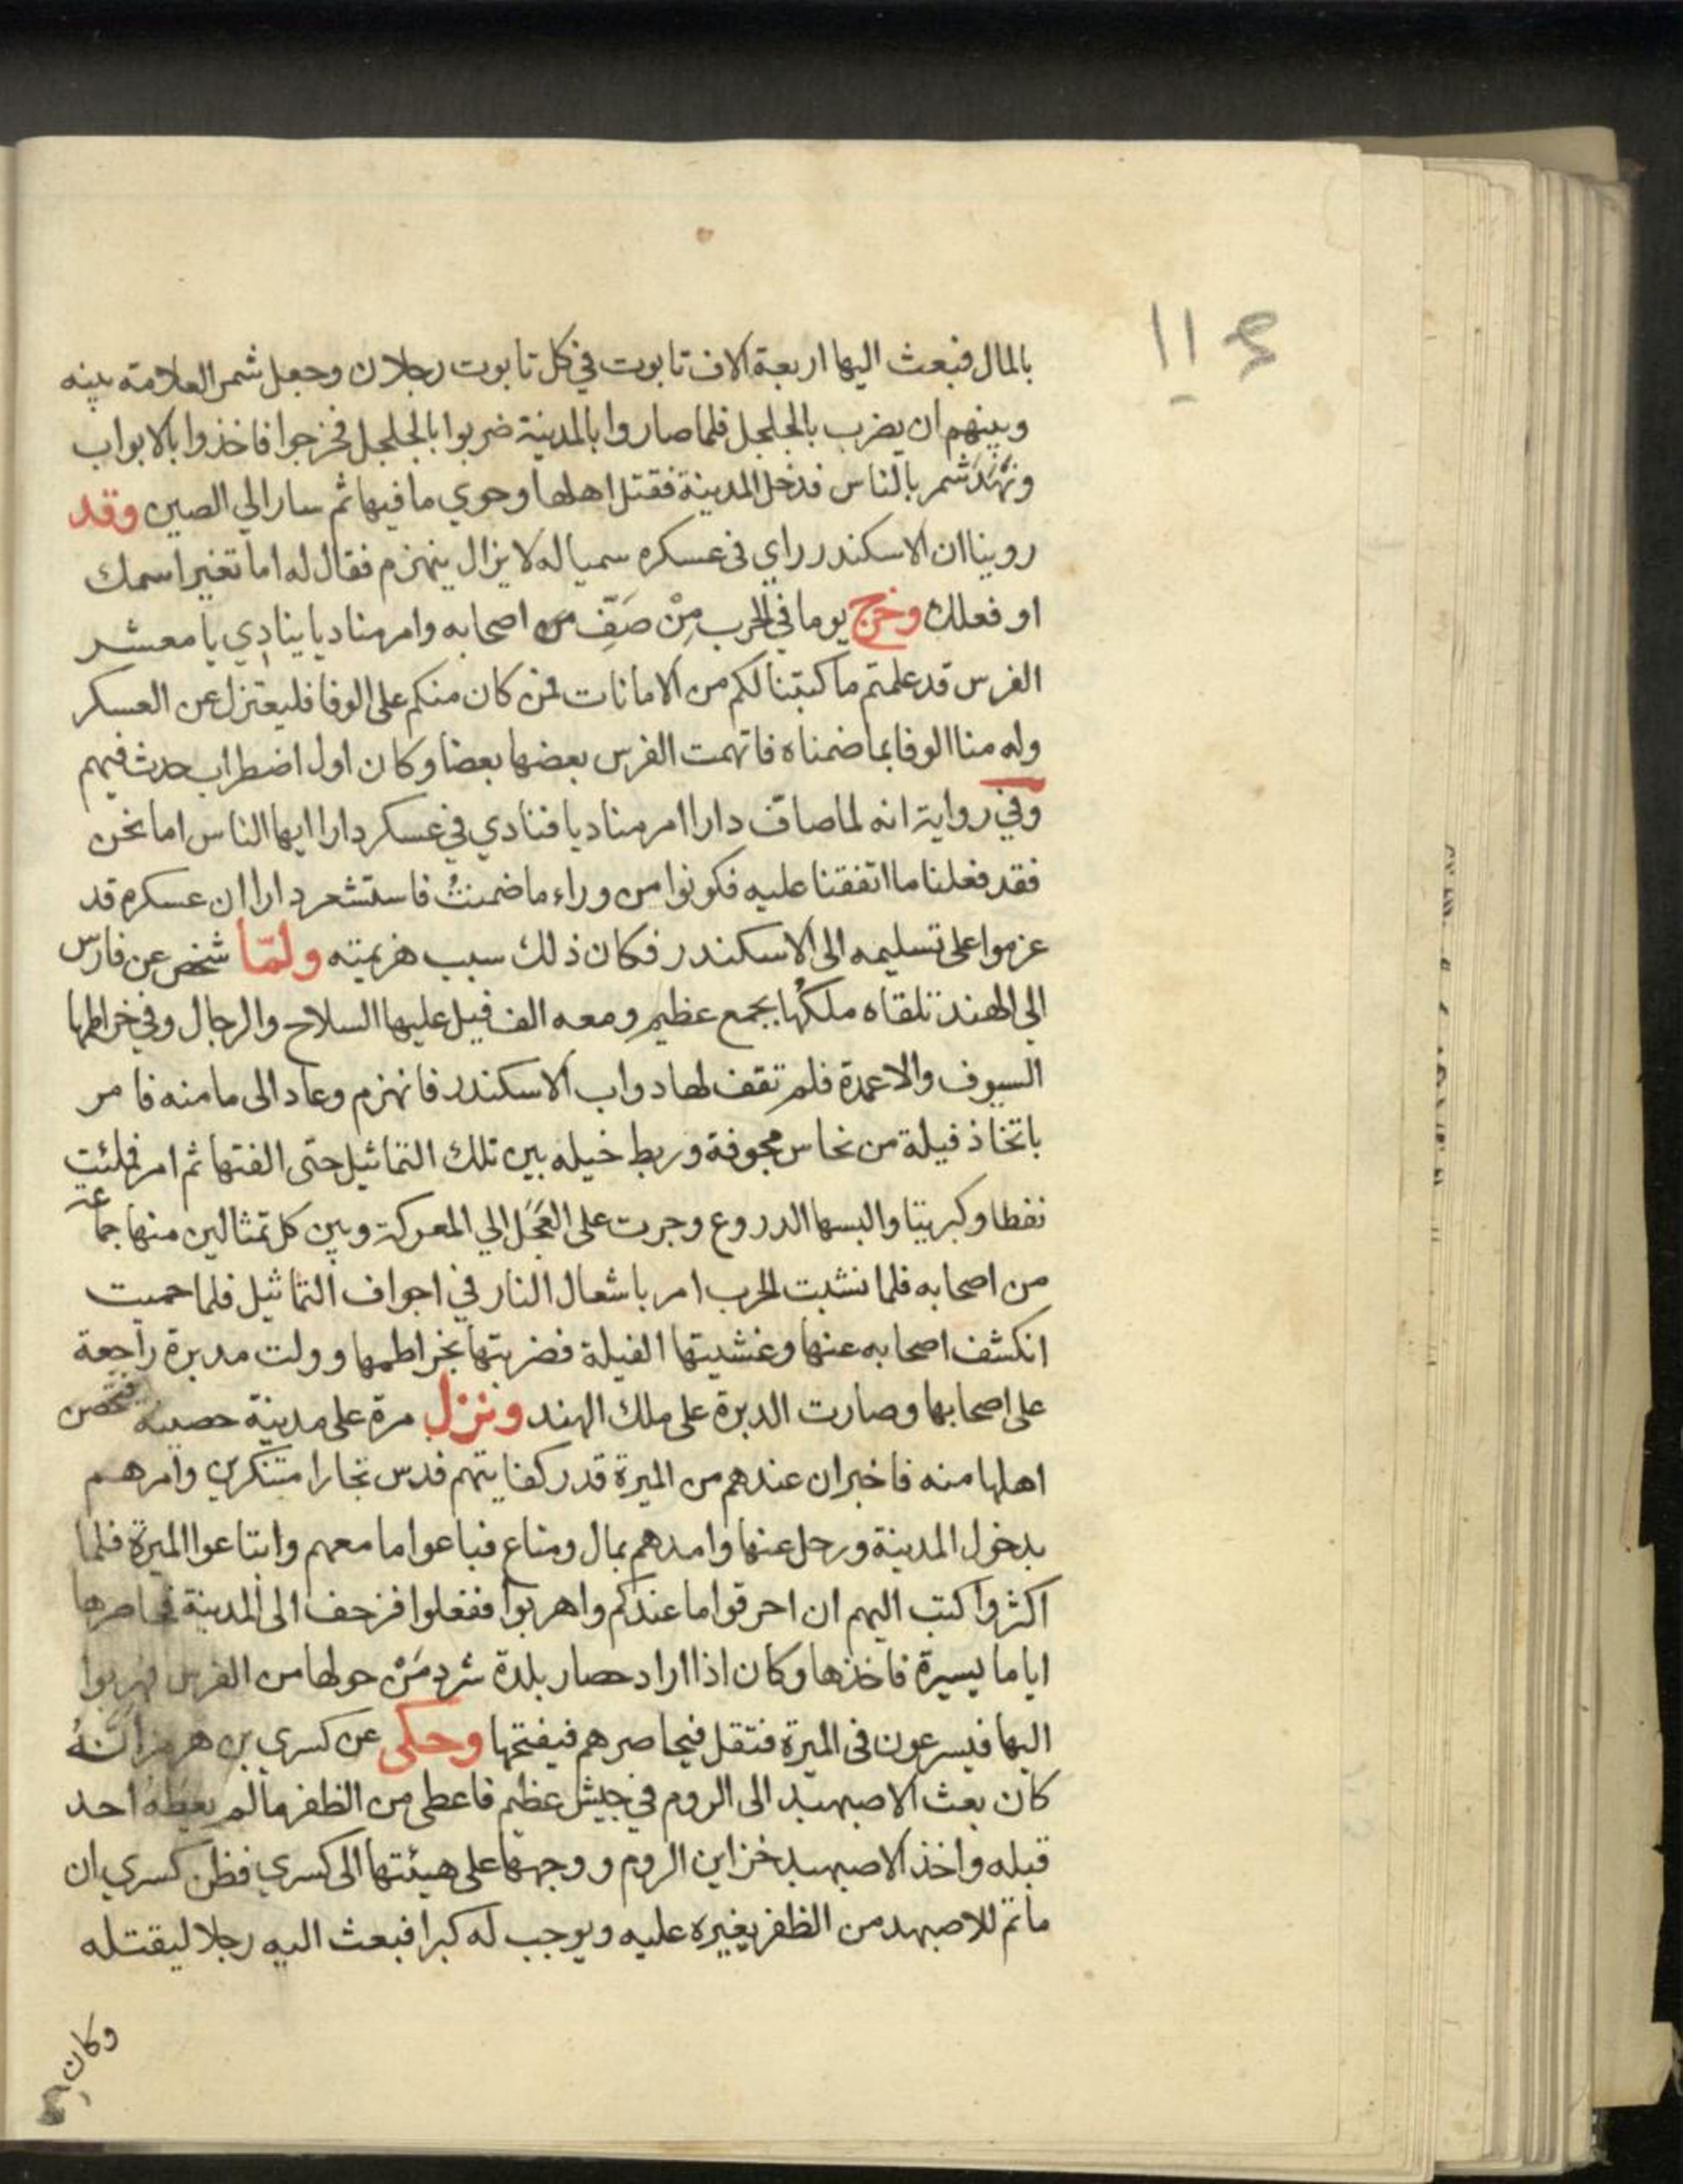 ١١٤
بالمال فبعث اليها اربعة الاف تابوت في كل تابوت رجلان وجعل شمر العلامة بينه
وبينهم ان يضرب بالجلجل فلما صاروا بالمدينة ضربوا بالجلجل فخرجوا فاخذوا بالابواب
ونَهَدَ شمر بالناس فدخل المدينة فقتل اهلها وحوي ما فيها ثم سار الي الصين وقد
روينا ان الاسكندر راي في عسكره سميا له لا يزال ينهزم فقال له اما تغير اسمك
او فعلك وخرج يوما في الحرب مِنْ صَفِّ من اصحابه وامر مناديا ينادي يا معشر
الفرس قد علمتم ما كتبنا لكم من الامانات فمن كان منكم على الوفا فليعتزل عن العسكر
وله منا الوفا بما ضمناه فاتهمت الفرس بعضها بعضا وكان اول اضطراب حدث فيهم
وفي رواية انه لما صافّ دارا امر مناديا فنادي في عسكر دارا ايها الناس اما نحن
فقد فعلنا ما اتفقنا عليه فكونوا من وراء ما ضمنتُ فاستشعر دارا ان عسكره قد
عزموا على تسليمه الى الاسكندر فكان ذلك سبب هزيمته ولمّا شخص عن فارس
الي الهند تلقاه ملكُها بجمع عظيمٍ ومعه الف فيل عليها السلاح والرجال وفي خراطمها
السيوف والاعمدة فلم تقف لها دواب الاسكندر فانهزم وعاد الى مامنه فامر
باتخاذ فيلة من نحاس مجوفة وربط خيله بين تلك التماثيل حتى الفتها ثم امر فملئت
نفطا وكبريتا والبسها الدروع وجرت على العَجَل الي المعركة وبين كل تمثالين منها جماعة
من اصحابه فلما نشبت الحرب امر باشعال النار في اجواف التماثيل فلما حميت
انكشف اصحابه عنها وغشيتها الفيلة فضربتها بخراطمها وولت مدبرة راجعة
على اصحابها وصارت الدبرة على ملك الهند ونزل مرة على مدينة حصينة فتحصن
اهلها منه فاخبر ان عندهم من الميرة قدر كفايتهم فدس تجارا متنكرين وامرهم
بدخول المدينة ورحل عنها وامدهم بمال ومتاع فباعوا ما معهم وابتاعوا الميرة فلما
اكثروا كتب اليهم ان احرقوا ما عندكم واهربوا ففعلوا فزحف الى المدينة فحاصرها
اياما يسيرة فاخذها وكان اذا اراد حصار بلدة شرد مَنْ حولها من الفرس فهربوا
اليها فيسرعون في الميرة فتقل فيحاصرهم فيفتحها وحكى عن كسري بن هرمز انهُ
كان بعث الاصبهبد الى الروم في جيش عظيم فاعطى من الظفر ما لم يعطه احد
قبله واخذ الاصبهبد خزاين الروم ووجهها على هيئتها الى كسري فظن كسري ان
ما تم للاصبهبد من الظفر يغيره عليه ويوجب له كبرا فبعث اليه رجلا ليقتله
وكان